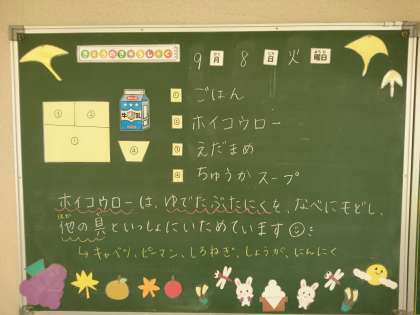 きょうのきゅうしょく
9月8日火曜日
① ② ③ ④
牛乳
① ごはん
② ホイコウロー
③ えだまめ
④ ちゅうかスープ
ホイコウローは、ゆでたぶたにくを、なべにもどし、
他の具といっしょにいためています☺!
↳キャベツ、ピーマン、しろねぎ、しょうが、にんにく